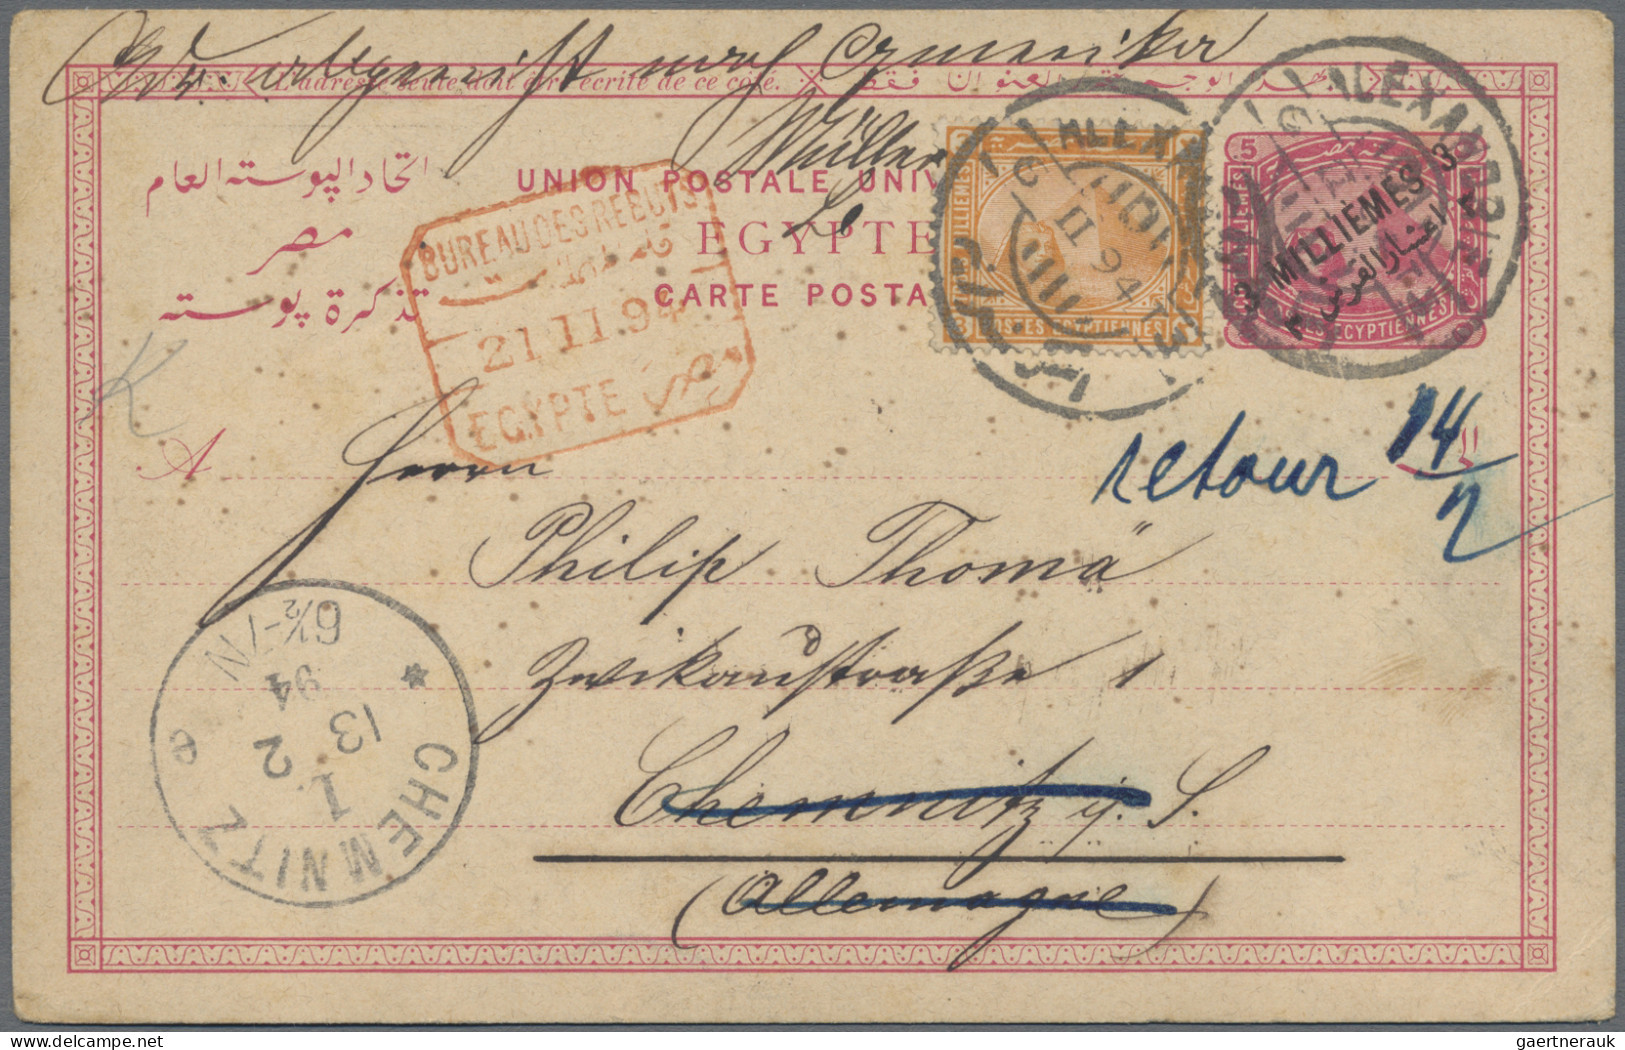 abgereist nach Amerika
L'adresse seule doit être écrite de ce côté.
Müller
اتحاد البوسته العام
UNION POSTALE UNIV
مصر
EGYPTE
تذكرة بوسته
CARTE POSTA
BUREAU DES REBUTS
21 II 94
EGYPTE مصر
ALEXAN
II 94
POSTES EGYPTIENNES
ALEXANDRIE
5
3 MILLIEMES 3
POSTES EGYPTIENNES
retour 14/2
A
Herrn
Philip Thomä
Zwikaustraße 1
Chemnitz i. S.
(Allemagne)
CHEMNITZ
1
13 2
94
6½-7N
e
K
gaertnerauk